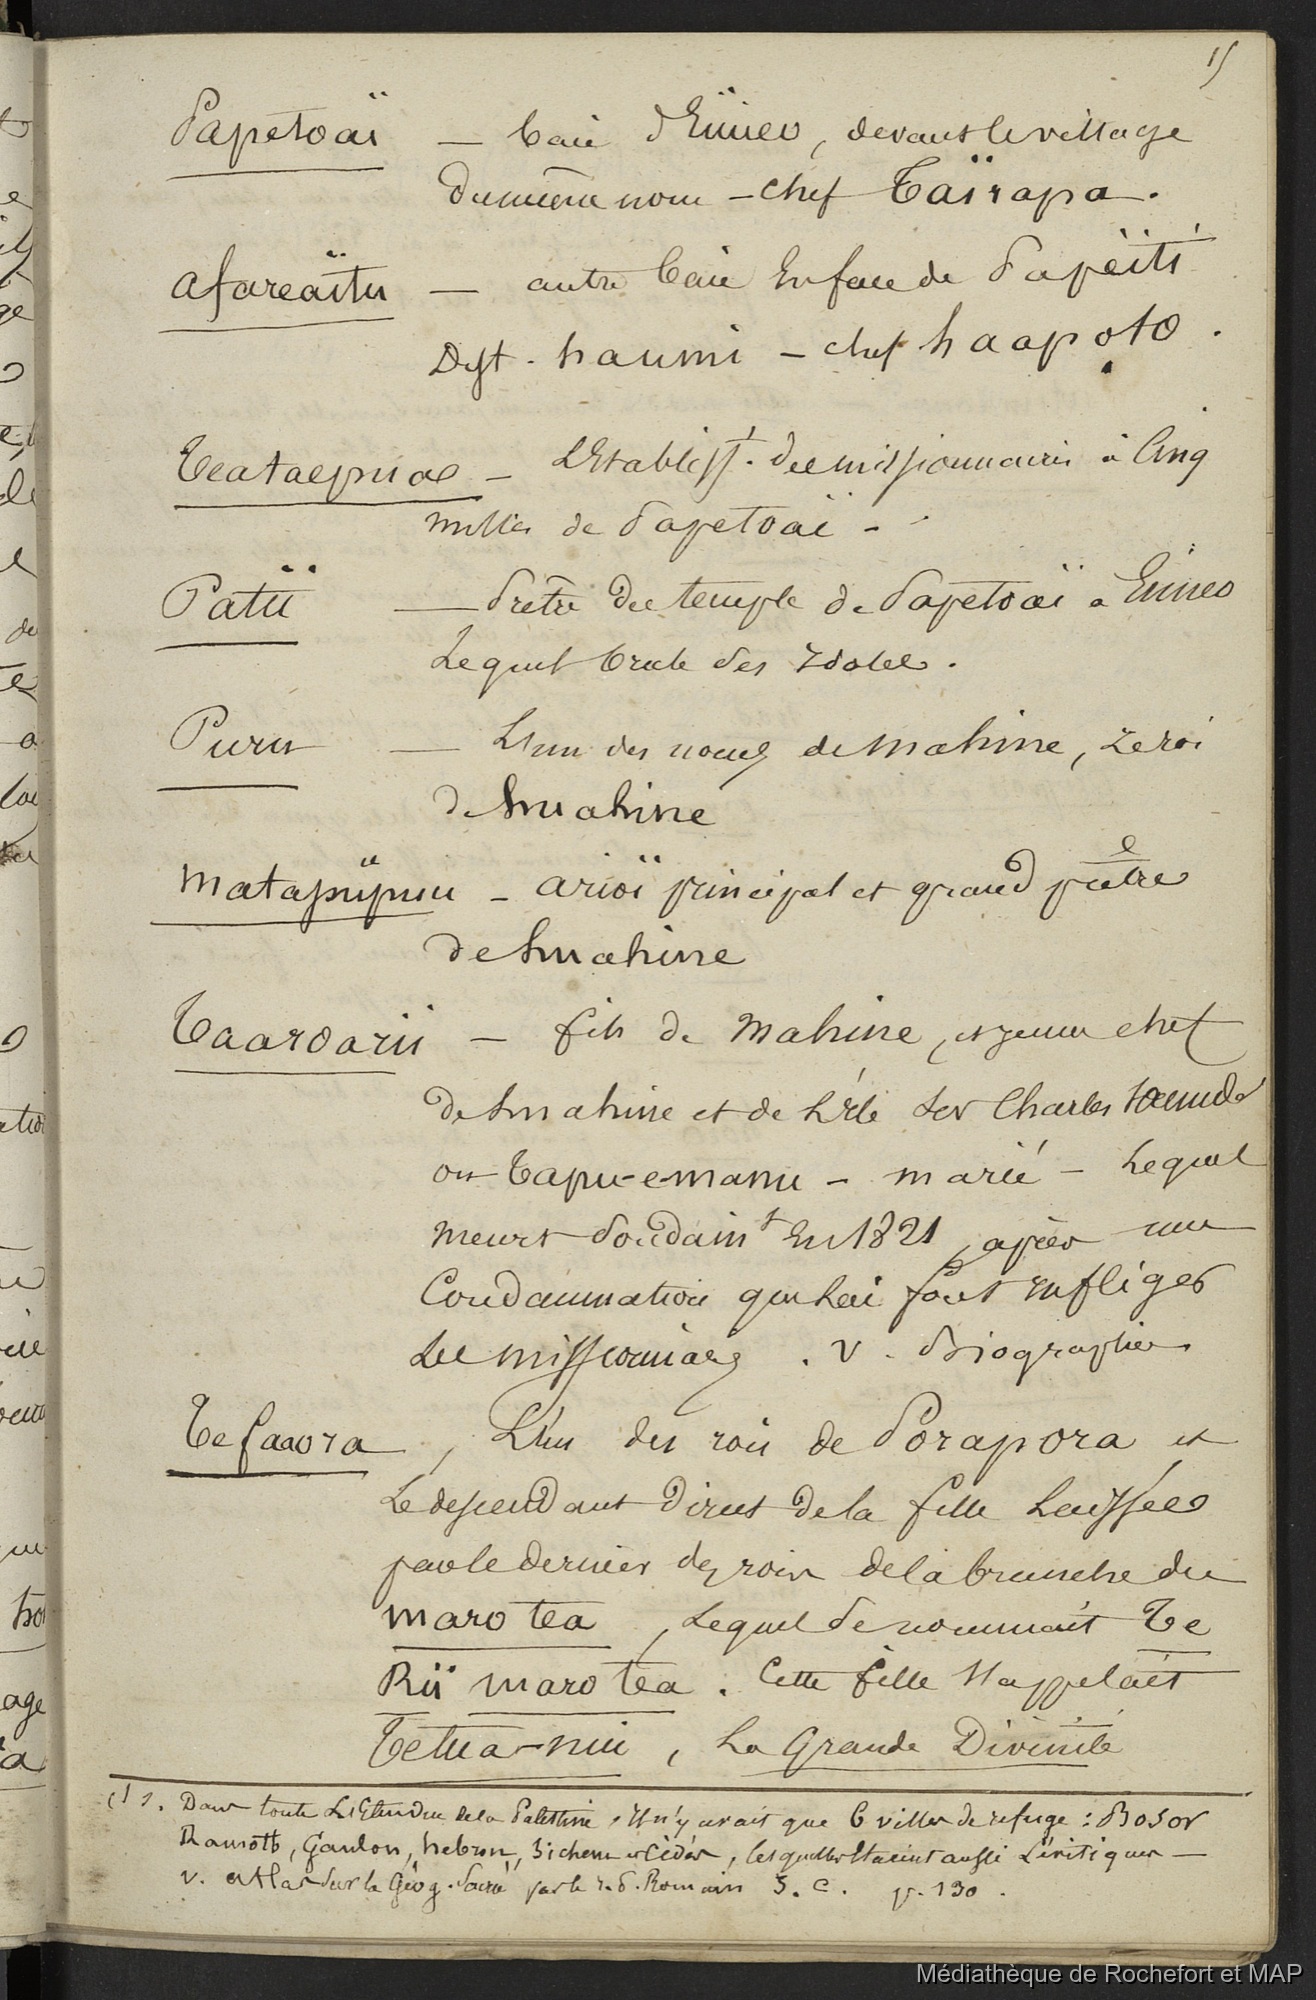 15
Papetoaï — baie d'Eïmeo, devant le village
du même nom – chef Taïrapa.
afareaïtu — autre baie en face de Papéïti
Dist. haumi – chef haapoto.
Teataepua – L'Etablisst. des missionnaires à Cinq
milles de Papetoaï –
Patii — Prêtre du temple de Papetoaï à Eimeo
Lequel brule des Idoles.
Puru — L'un des noms de mahine, Le roi
de huahine
matapupuu – arioï principal et grand prêtre
de huahine
Taaroarii – fils de Mahine, et jeune chef
de huahine et de l'île Ser Charles
ou Tapu-e-manu – marié – Lequel
meurt Soudaint En 1821, après une
Condamnation que lui font infliger
Les missionnaires. V. Biographies
Tefaaora, L'un des rois de Porapora et
Le descendant direct de la fille Laissée
par le dernier des rois de la branche du
maro tea, Lequel Se nommait Te
Rii maro tea. Cette fille S'appelait
Tetua-nui, La Grande Divinité
(1 1. Dans toute L'Etendue de la Palestine, il n'y avait que 6 villes de refuge : Bosor
Ramoth, Gaulon, hebron, Sichem et Cédés, lesquelles Etaient aussi Lévitiques —
v. atlas Sur la Géog. Sacrée par le r. P. Romain S. C. p. 130.
Médiathèque de Rochefort et MAP